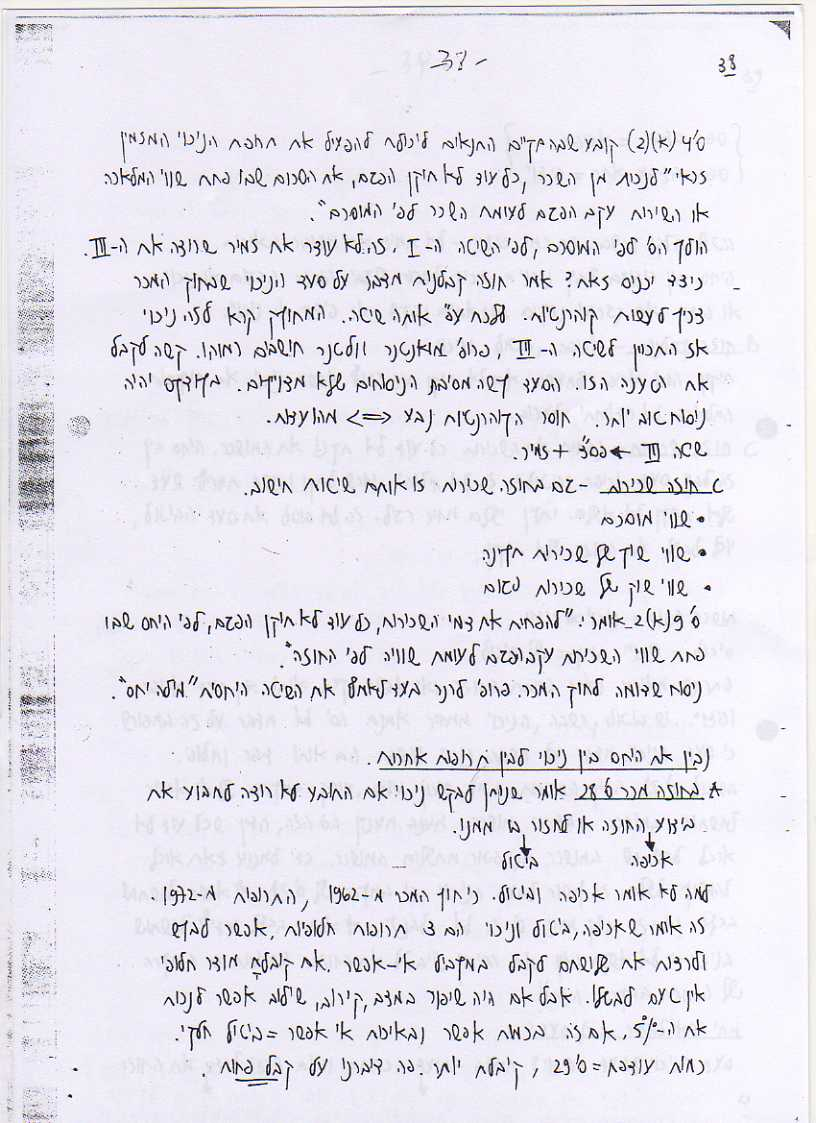 -38-
38
ס'4(א)(2) קובע שבהתקיים התנאים ליכולת להפעיל את תרופת הניכוי המזמין
זכאי "לנכות מן השכר, כל עוד לא תיקן הפגם, את הסכום שבו פחת שווי המלאכה
או השירות עקב הפגם לעומת השכר לפי המוסכם".
הולך הס' לפי המוסכם, לפי השיטה ה-I. זה לא עוצר את זמיר שרוצה את ה-III.
כיצד יכניס זאת? אמר חוזה קבלנות מדבר על סעד והניכוי שבחוק המכר
צריך לעשות קוהרנטיות. ללכת עפ"י אותה שיטה. המחוקק קרא לזה ניכוי
אז התכוון לשיטה ה-III, פרופ' מואנטנר וולטנר חושבים כמוהו. קשה לקבל
את הטענה הזו. הסעד קשה מסיבת הניסוחים שלא מצדיקים. בקודקס יהיה
ניסוח טוב יותר. חוסר הקוהרנטיות נבע <=> מהועדות.
שיטה III ← פס"ד + זמיר.
C חוזה שכירות - גם בחוזה שכירות זו אותה שיטות חישוב.
• שווי מוסכם
• שווי שוק של שכירות תקינה
• שווי שוק של שכירות פגום
ס'9(א)(2) אומר: "להפחית את דמי השכירות, כל עוד לא תיקן הפגם, לפי היחס שבו
פחת שווי השכירות עקב הפגם לעומת שוויה לפי החוזה".
ניסוח שדומה לחוק המכר. פרופ' לרנר בעד לאמץ את השיטה היחסית "מילה יחס".
נבין את היחס בין ניכוי לבין תרופות אחרות.
A בחוזה מכר ס'28 אומר שניתן לבקש ניכוי אם התובע לא רוצה לתבוע את
ביצוע החוזה או לחזור בו ממנו.
אכיפה ביטול
למה לא אומר אכיפה וביטול. כי חוק המכר מ-1968, התרופות מ-1970.
זה אומר שאכיפה, ביטול וניכוי הם 3 תרופות חלופיות, אפשר לבקש
ולרצות את שלושתם לקבל במקביל אי-אפשר. אם קיבלת מוצר חלופי
אין טעם לבטל. אבל אם היה שיפור במצב, קירוב, שילוב אפשר לנכות
את ה-5%. אם זה בכמות אפשר ובאיכות אי אפשר = ביטול חלקי.
כמות עודפת = ס'29, קיבלת יותר. פה דברנו על קבל פחות.